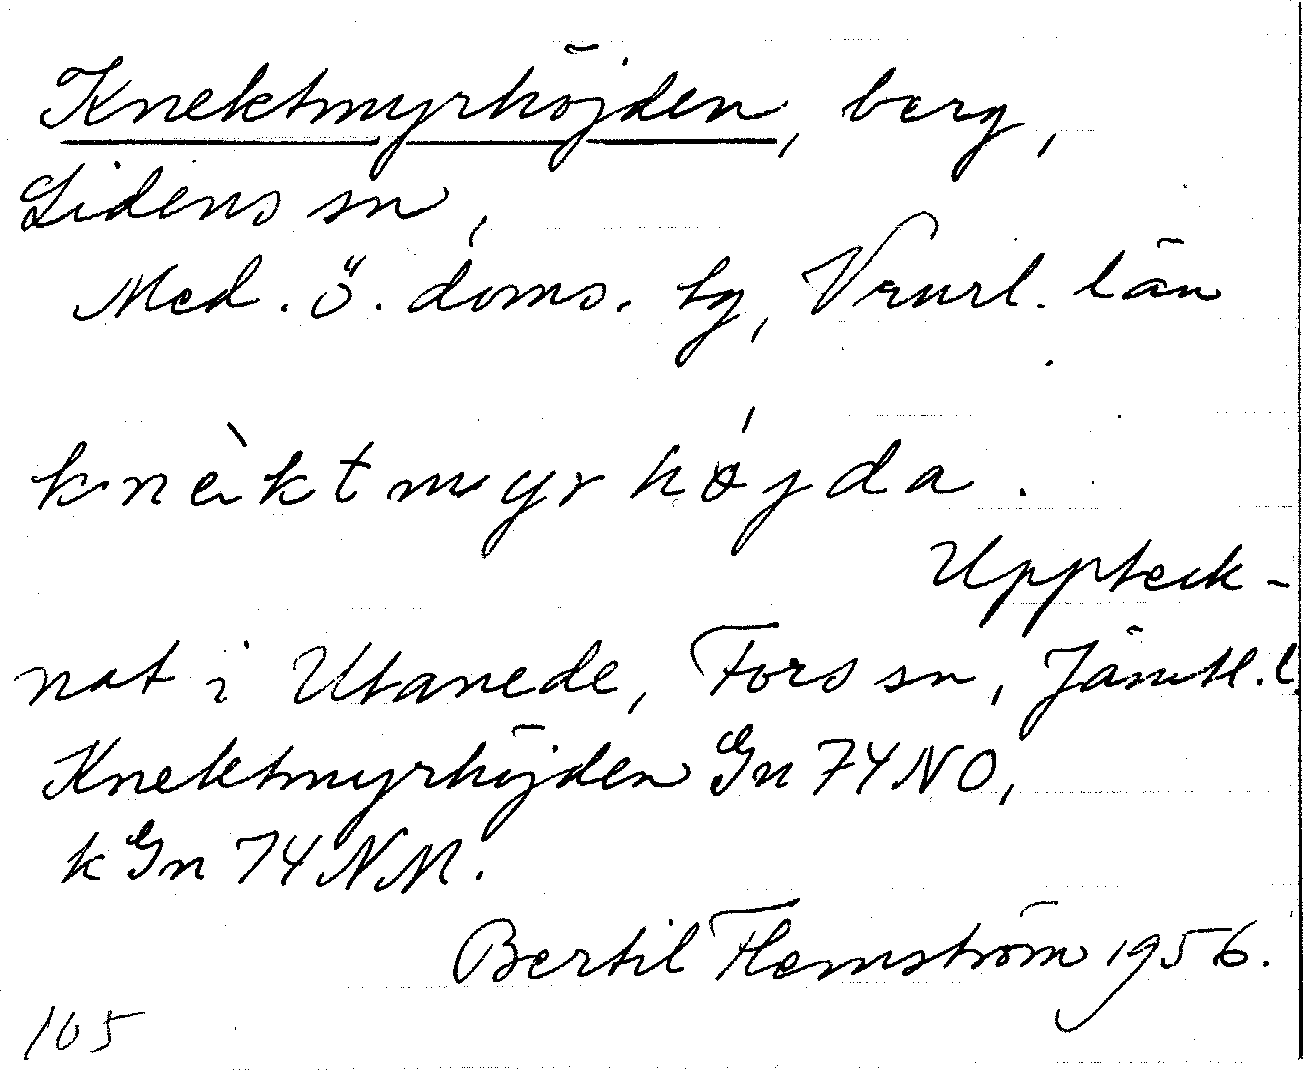 Knektmyrhöjden, berg,
Lidens sn,
Med. ö. doms. tg, Vnurl. län
knèktmyrhǿjda.
Uppteck-
nat i Utanede, Fors sn, Jämtl. l.
Knektmyrhöjden Gn 74 NO,
k Gn 74 NM.
Bertil Flemström 1956.
105